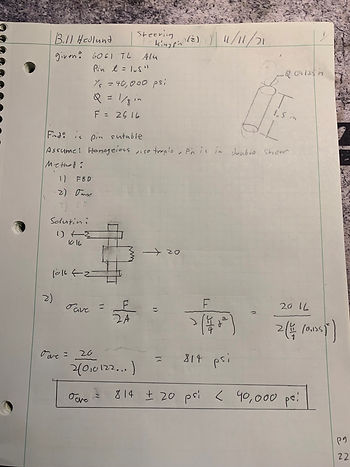 Bill Hedlund Steering Kingpin (2) 11/11/21 1
given: 6061 T6 Alu
Pin L = 1.5"
Ys = 40,000 psi
Q = 1/8 in
F = 20 lb
Q 0.125 in
1.5 in
Find: is pin suitable
Assume: Homogeious, isotropic, Pin is in double shear
Method:
1) FBD
2) σave
Solution:
1) 10 lb
→ 20
10 lb
2) σave = F / 2A = F / 2(π/4 d²) = 20 lb / 2(π/4 (0.125)²)
σave = 20 / 2(0.0122...) = 814 psi
σave = 814 ± 20 psi < 40,000 psi
pg
22